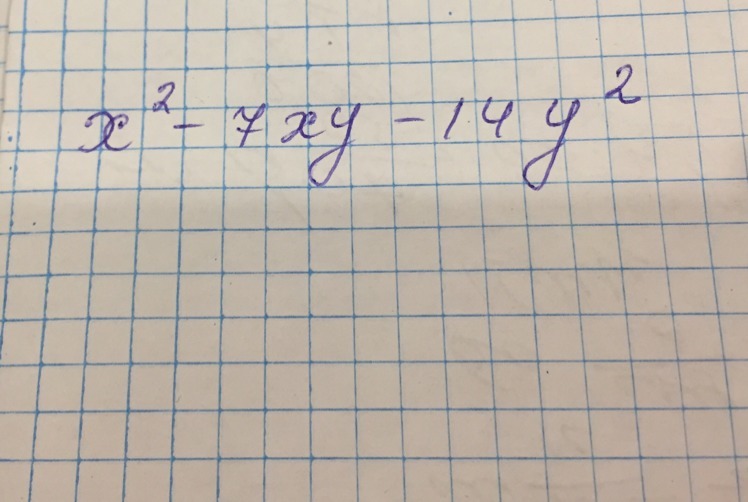 x² - 7xy - 14y²